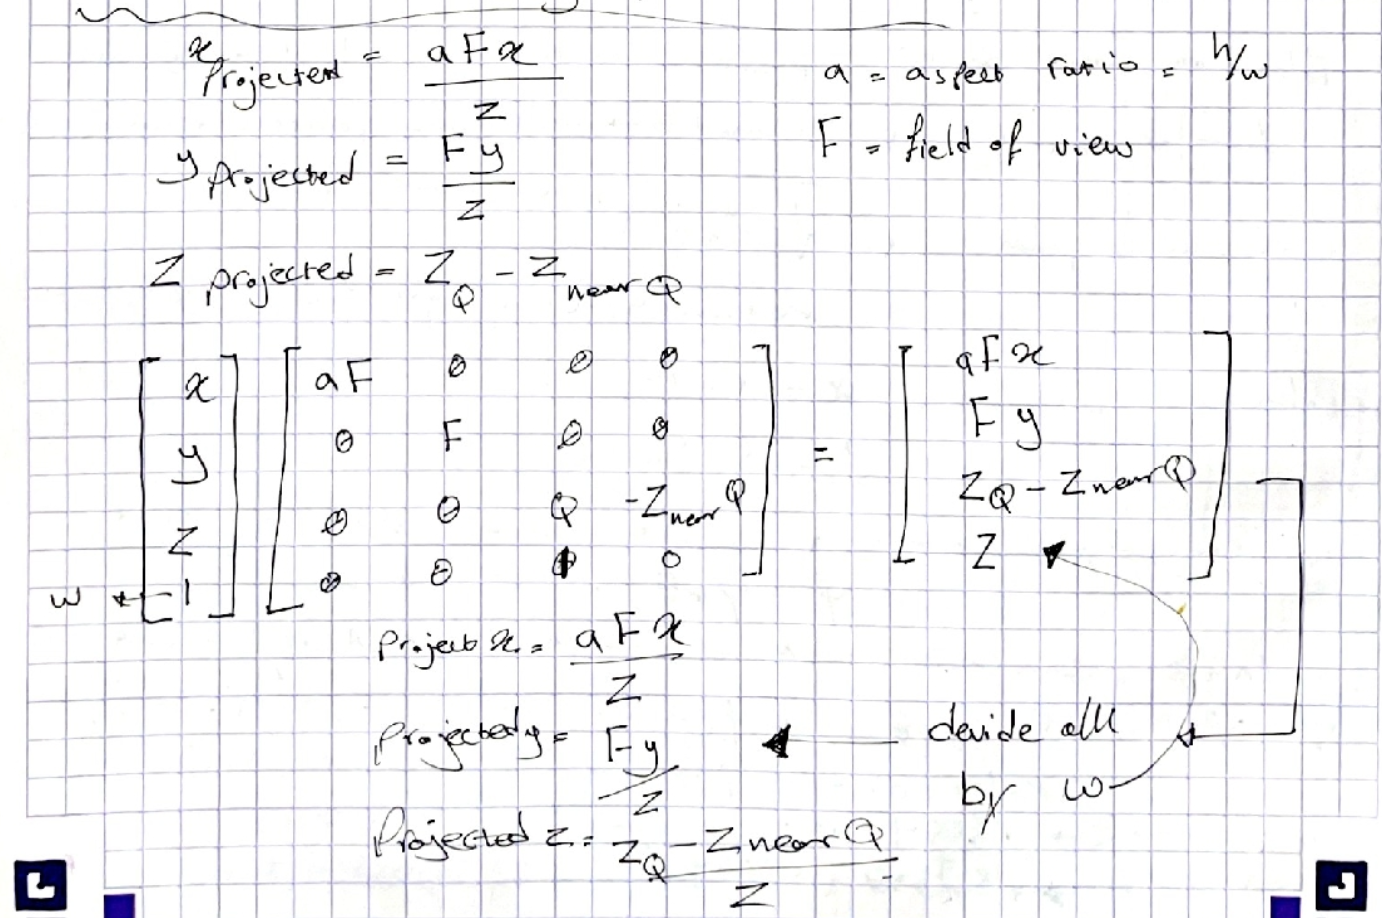 x projected = aFx / z
a = aspect ratio = h/w
y projected = Fy / z
F = field of view
Z projected = Z_Q - Z_near Q
[x y z 1] [aF 0 0 0; 0 F 0 0; 0 0 Q -Z_near Q; 0 0 1 0] = [aFx; Fy; Z_Q - Z_near Q; Z]
w
Project x. = aFx / Z
Projected y = Fy / Z
devide all
by w
Projected z = Z_Q - Z near Q / Z